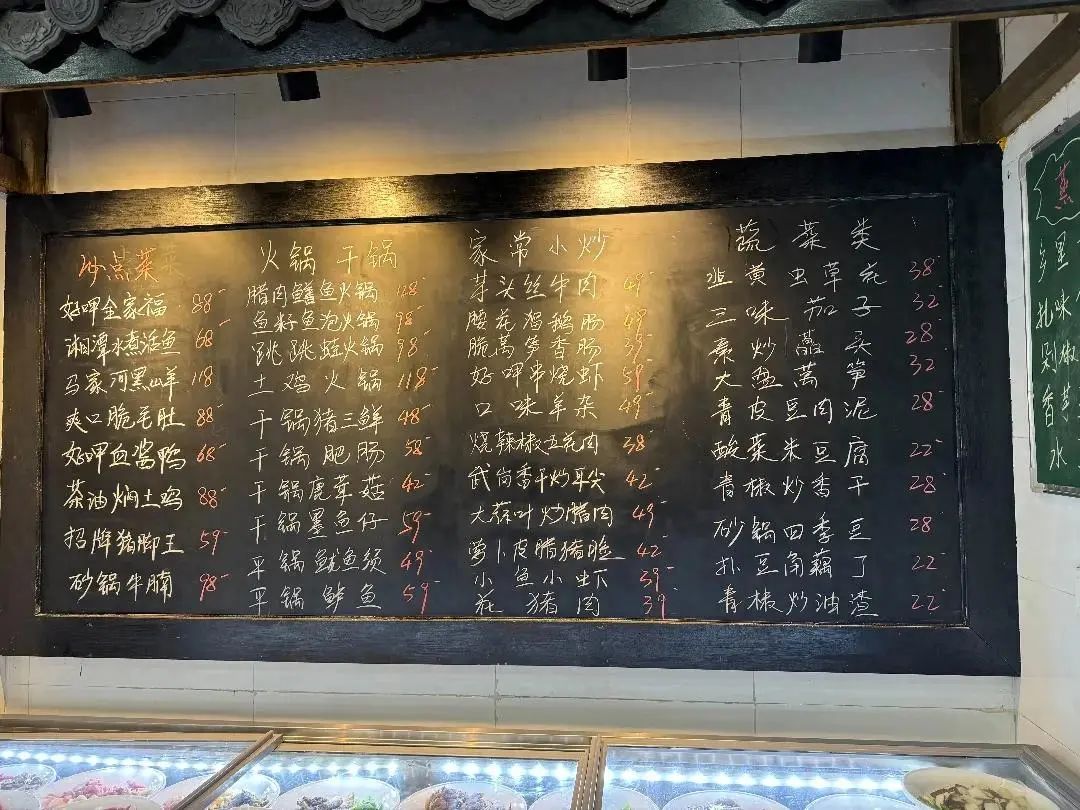 炒蒸菜
好呷全家福 88-
湘潭水煮活鱼 68-
马家河黑山羊 118
爽口脆毛肚 88-
好呷血酱鸭 68-
茶油焖土鸡 88-
招牌猪脚王 59-
砂锅牛腩 98-
火锅 干锅
腊肉鳝鱼火锅 128
鱼籽鱼泡火锅 98-
跳跳蛙火锅 98-
土鸡火锅 118-
干锅猪三鲜 48-
干锅肥肠 58-
干锅鹿茸菇 42-
干锅墨鱼仔 59-
平锅鱿鱼须 49-
平锅鲈鱼 59-
家常小炒
芽头丝牛肉 49-
腰花焖鹅肠 49-
脆莴笋香肠 39-
好呷串烧虾 59-
口味羊杂 49-
烧辣椒五花肉 38-
武岗香干炒耳尖 42-
大蒜叶炒腊肉 49-
萝卜皮腊猪脸 42-
小鱼小虾 39-
花猪肉 39-
蔬菜类
韭黄虫草花 38-
三味茄子 32-
素炒藠头 28-
大盘莴笋 32-
青皮豆肉泥 28-
酸菜米豆腐 22-
青椒炒香干 28-
砂锅四季豆 28
扑豆角藕丁 22-
青椒炒油渣 22-
蒸
乡里
扎味
剁椒
香芋
水